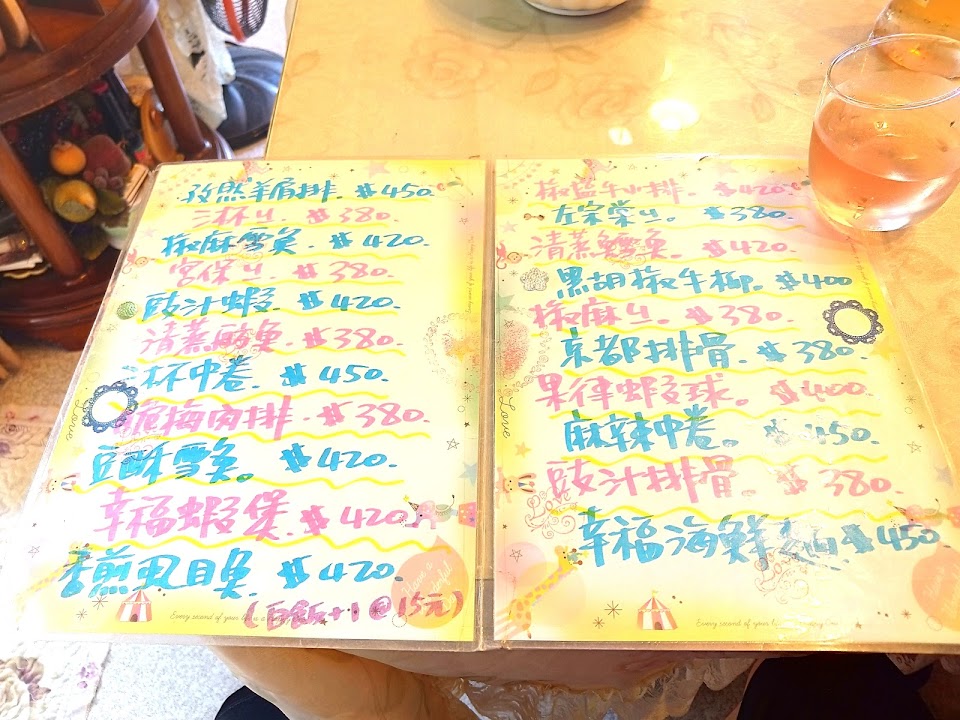 孜然羊肩排. $450.
三杯ㄐ. $380.
椒麻雪魚. $420.
宮保ㄐ. $380.
豉汁蝦. $420.
清蒸鯛魚. $380.
三杯中卷. $450.
脆梅肉排. $380.
豆酥雪魚。 $420.
幸福蝦煲. $420.
香煎虱目魚. $420.
(白飯+1@15元)
Love
Every second of your
椒鹽牛小排. $420.
左宗棠ㄐ。 $380.
清蒸鱈魚. $420.
黑胡椒牛柳. $400
椒麻ㄐ. $380.
京都排骨. $380.
果律蝦球。 $400.
麻辣中卷。 $450.
豉汁排骨. $380.
幸福海鮮 $450.
Love
Every second of your